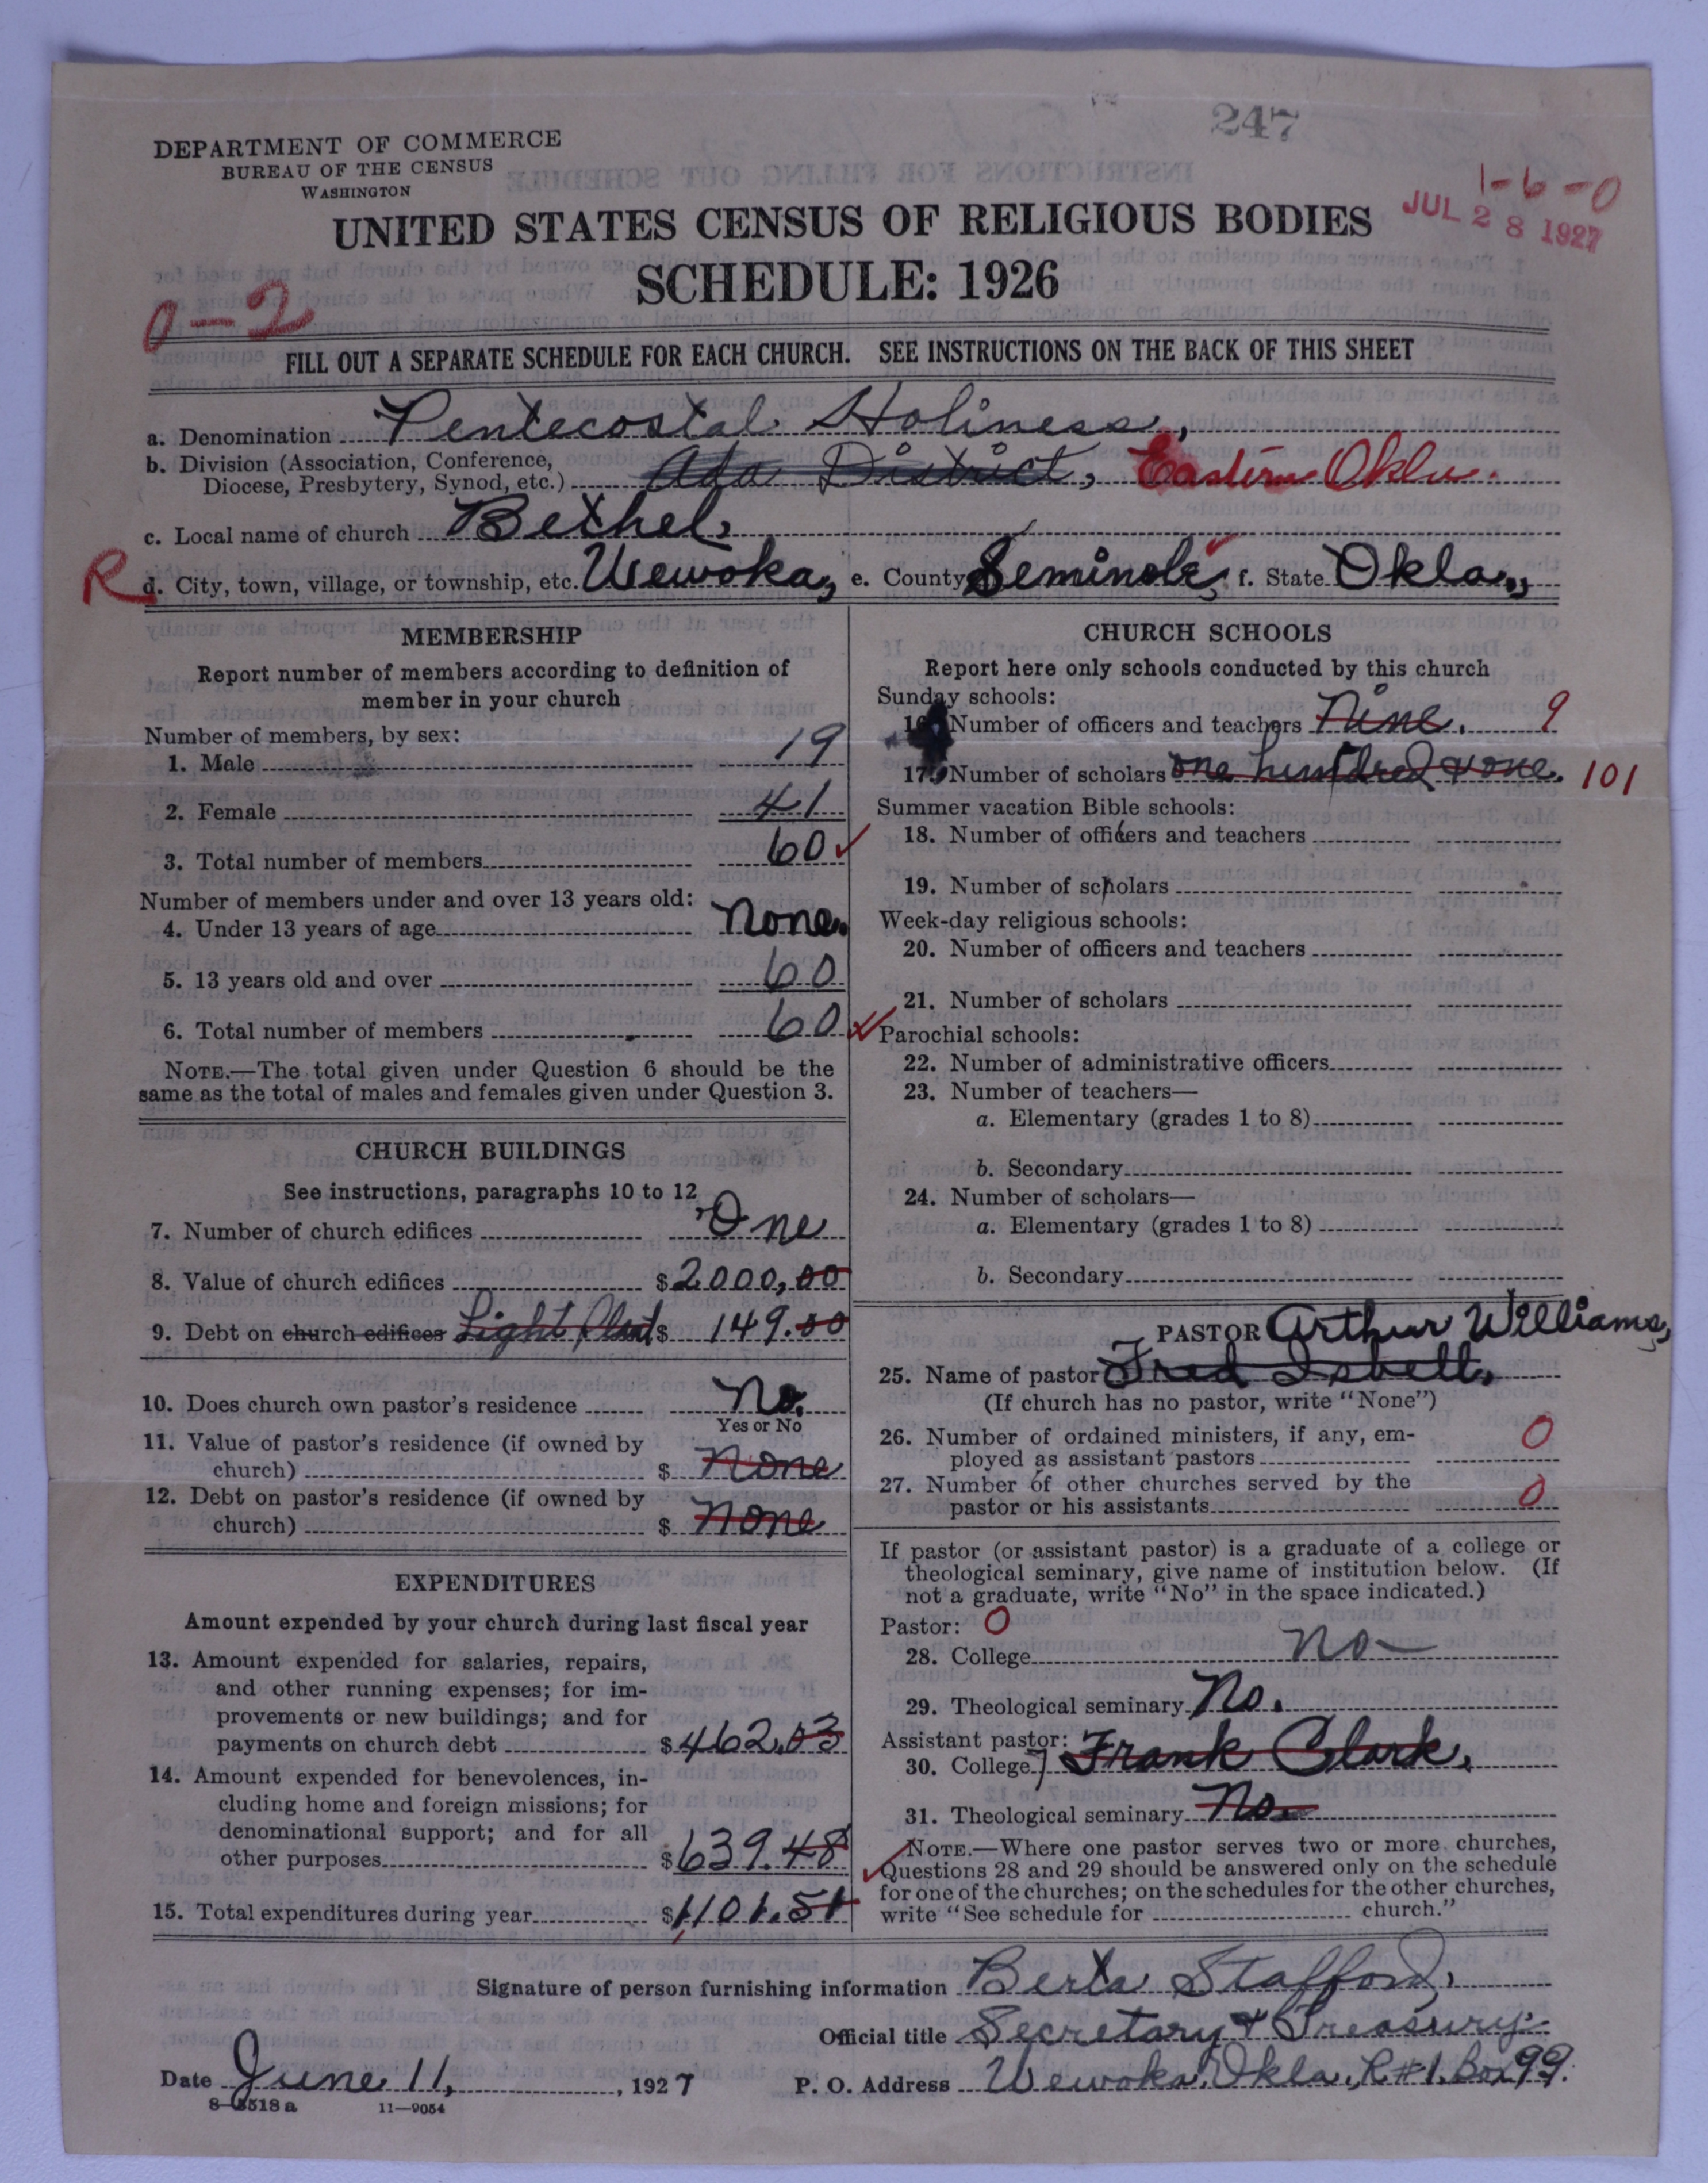 247
DEPARTMENT OF COMMERCE
BUREAU OF THE CENSUS
WASHINGTON
1-6-0
JUL 28 1927
UNITED STATES CENSUS OF RELIGIOUS BODIES
SCHEDULE: 1926
0-2
FILL OUT A SEPARATE SCHEDULE FOR EACH CHURCH. SEE INSTRUCTIONS ON THE BACK OF THIS SHEET
a. Denomination Pentecostal Holiness,
b. Division (Association, Conference, Diocese, Presbytery, Synod, etc.) Ada District, Eastern Okla.
c. Local name of church Bethel,
R d. City, town, village, or township, etc. Wewoka, e. County Seminole, f. State Okla.,
MEMBERSHIP
Report number of members according to definition of
member in your church
Number of members, by sex:
1. Male 19
2. Female 41
3. Total number of members 60
Number of members under and over 13 years old:
4. Under 13 years of age None.
5. 13 years old and over 60
6. Total number of members 60
NOTE.—The total given under Question 6 should be the
same as the total of males and females given under Question 3.
CHURCH BUILDINGS
See instructions, paragraphs 10 to 12
7. Number of church edifices One
8. Value of church edifices $2000,00
9. Debt on church edifices Light Plant $ 149.50
10. Does church own pastor's residence No.
Yes or No
11. Value of pastor's residence (if owned by
church) $ None
12. Debt on pastor's residence (if owned by
church) $ None
EXPENDITURES
Amount expended by your church during last fiscal year
13. Amount expended for salaries, repairs,
and other running expenses; for im-
provements or new buildings; and for
payments on church debt $462.03
14. Amount expended for benevolences, in-
cluding home and foreign missions; for
denominational support; and for all
other purposes $639.48
15. Total expenditures during year $1101.51
CHURCH SCHOOLS
Report here only schools conducted by this church
Sunday schools:
16. Number of officers and teachers Nine. 9
17. Number of scholars one hundred & one. 101
Summer vacation Bible schools:
18. Number of officers and teachers
19. Number of scholars
Week-day religious schools:
20. Number of officers and teachers
21. Number of scholars
Parochial schools:
22. Number of administrative officers
23. Number of teachers—
a. Elementary (grades 1 to 8)
b. Secondary
24. Number of scholars—
a. Elementary (grades 1 to 8)
b. Secondary
PASTOR Arthur Williams,
25. Name of pastor Fred Isbell,
(If church has no pastor, write "None")
26. Number of ordained ministers, if any, em-
ployed as assistant pastors 0
27. Number of other churches served by the
pastor or his assistants 0
If pastor (or assistant pastor) is a graduate of a college or
theological seminary, give name of institution below. (If
not a graduate, write "No" in the space indicated.)
Pastor: 0
28. College No
29. Theological seminary No.
Assistant pastor:
30. College Frank Clark,
31. Theological seminary No.
NOTE.—Where one pastor serves two or more churches,
Questions 28 and 29 should be answered only on the schedule
for one of the churches; on the schedules for the other churches,
write "See schedule for church."
Signature of person furnishing information Berta Stafford,
Official title Secretary & Treasury.
Date June 11, , 1927 P. O. Address Wewoka, Okla., R#1. Box 99.
8—5518 a 11—9054